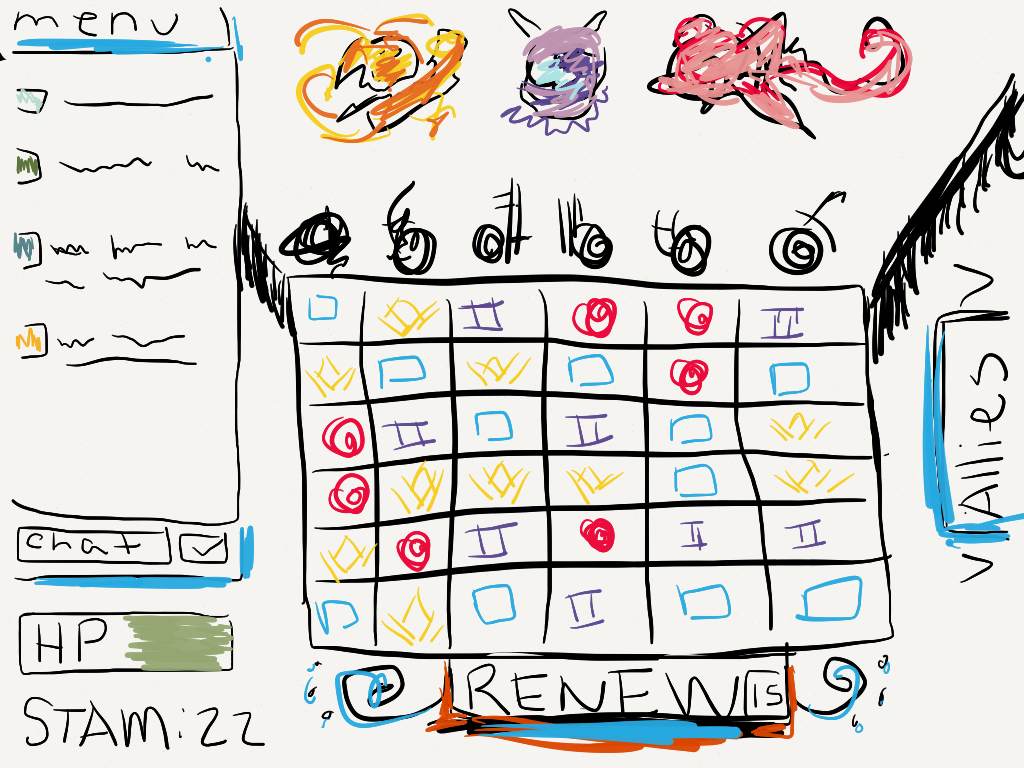 menu
chat
HP
STAM: 22
RENEW 15
< Allies >